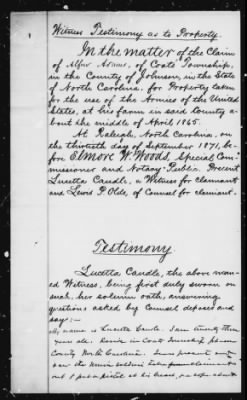 Witness Testimony as to Property.
In the matter of the Claim
of Alfur Adams, of Coats Township,
in the County of Johnson, in the State
of North Carolina, for Property taken
for the use of the Armies of the United
States, at his farm in said County a-
bout the middle of April 1865.
At Raleigh, North Carolina, on
the thirtieth day of September 1871, be-
fore Elmore W. Woods, Special Com-
missioner and Notary Public, Present
Lucetta Caudle, a Witness for claimant
and Lewis P. Olds, of Counsel for claimant.
Testimony
Lucetta Caudle, the above nam-
ed Witness, being first duly sworn on
such her solemn oath, answering
questions asked by Counsel deposes and
says:—
My name is Lucetta Caudle. I am twenty three
years old. Reside in Coats Township Johnson
County North Carolina. I was present and
saw the Union soldiers take
out & put a pistol at his breast,